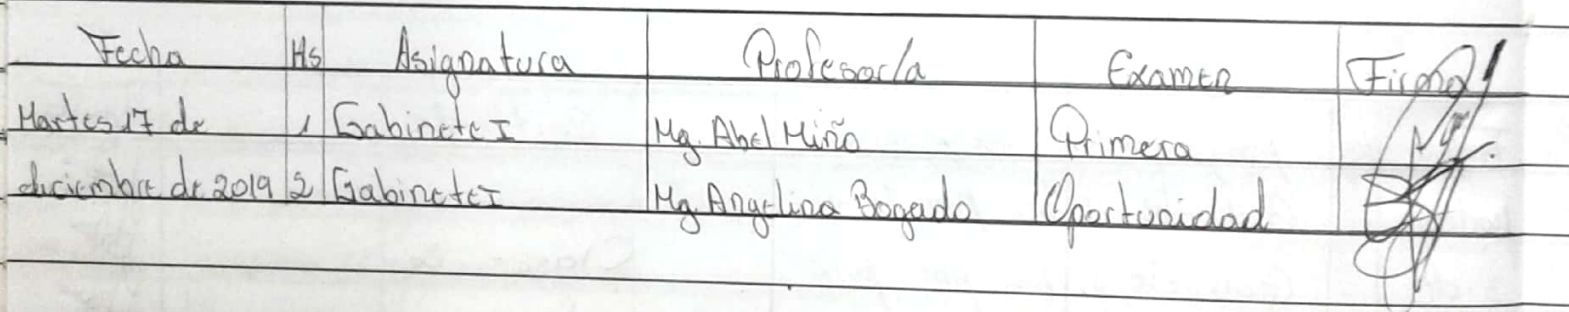 Fecha Hs Asignatura Profesor/a Examen Firma
Martes 17 de 1 Gabinete I Mg. Abel Miño Primera
diciembre de 2019 2 Gabinete I Mg. Angelina Bogado Oportunidad